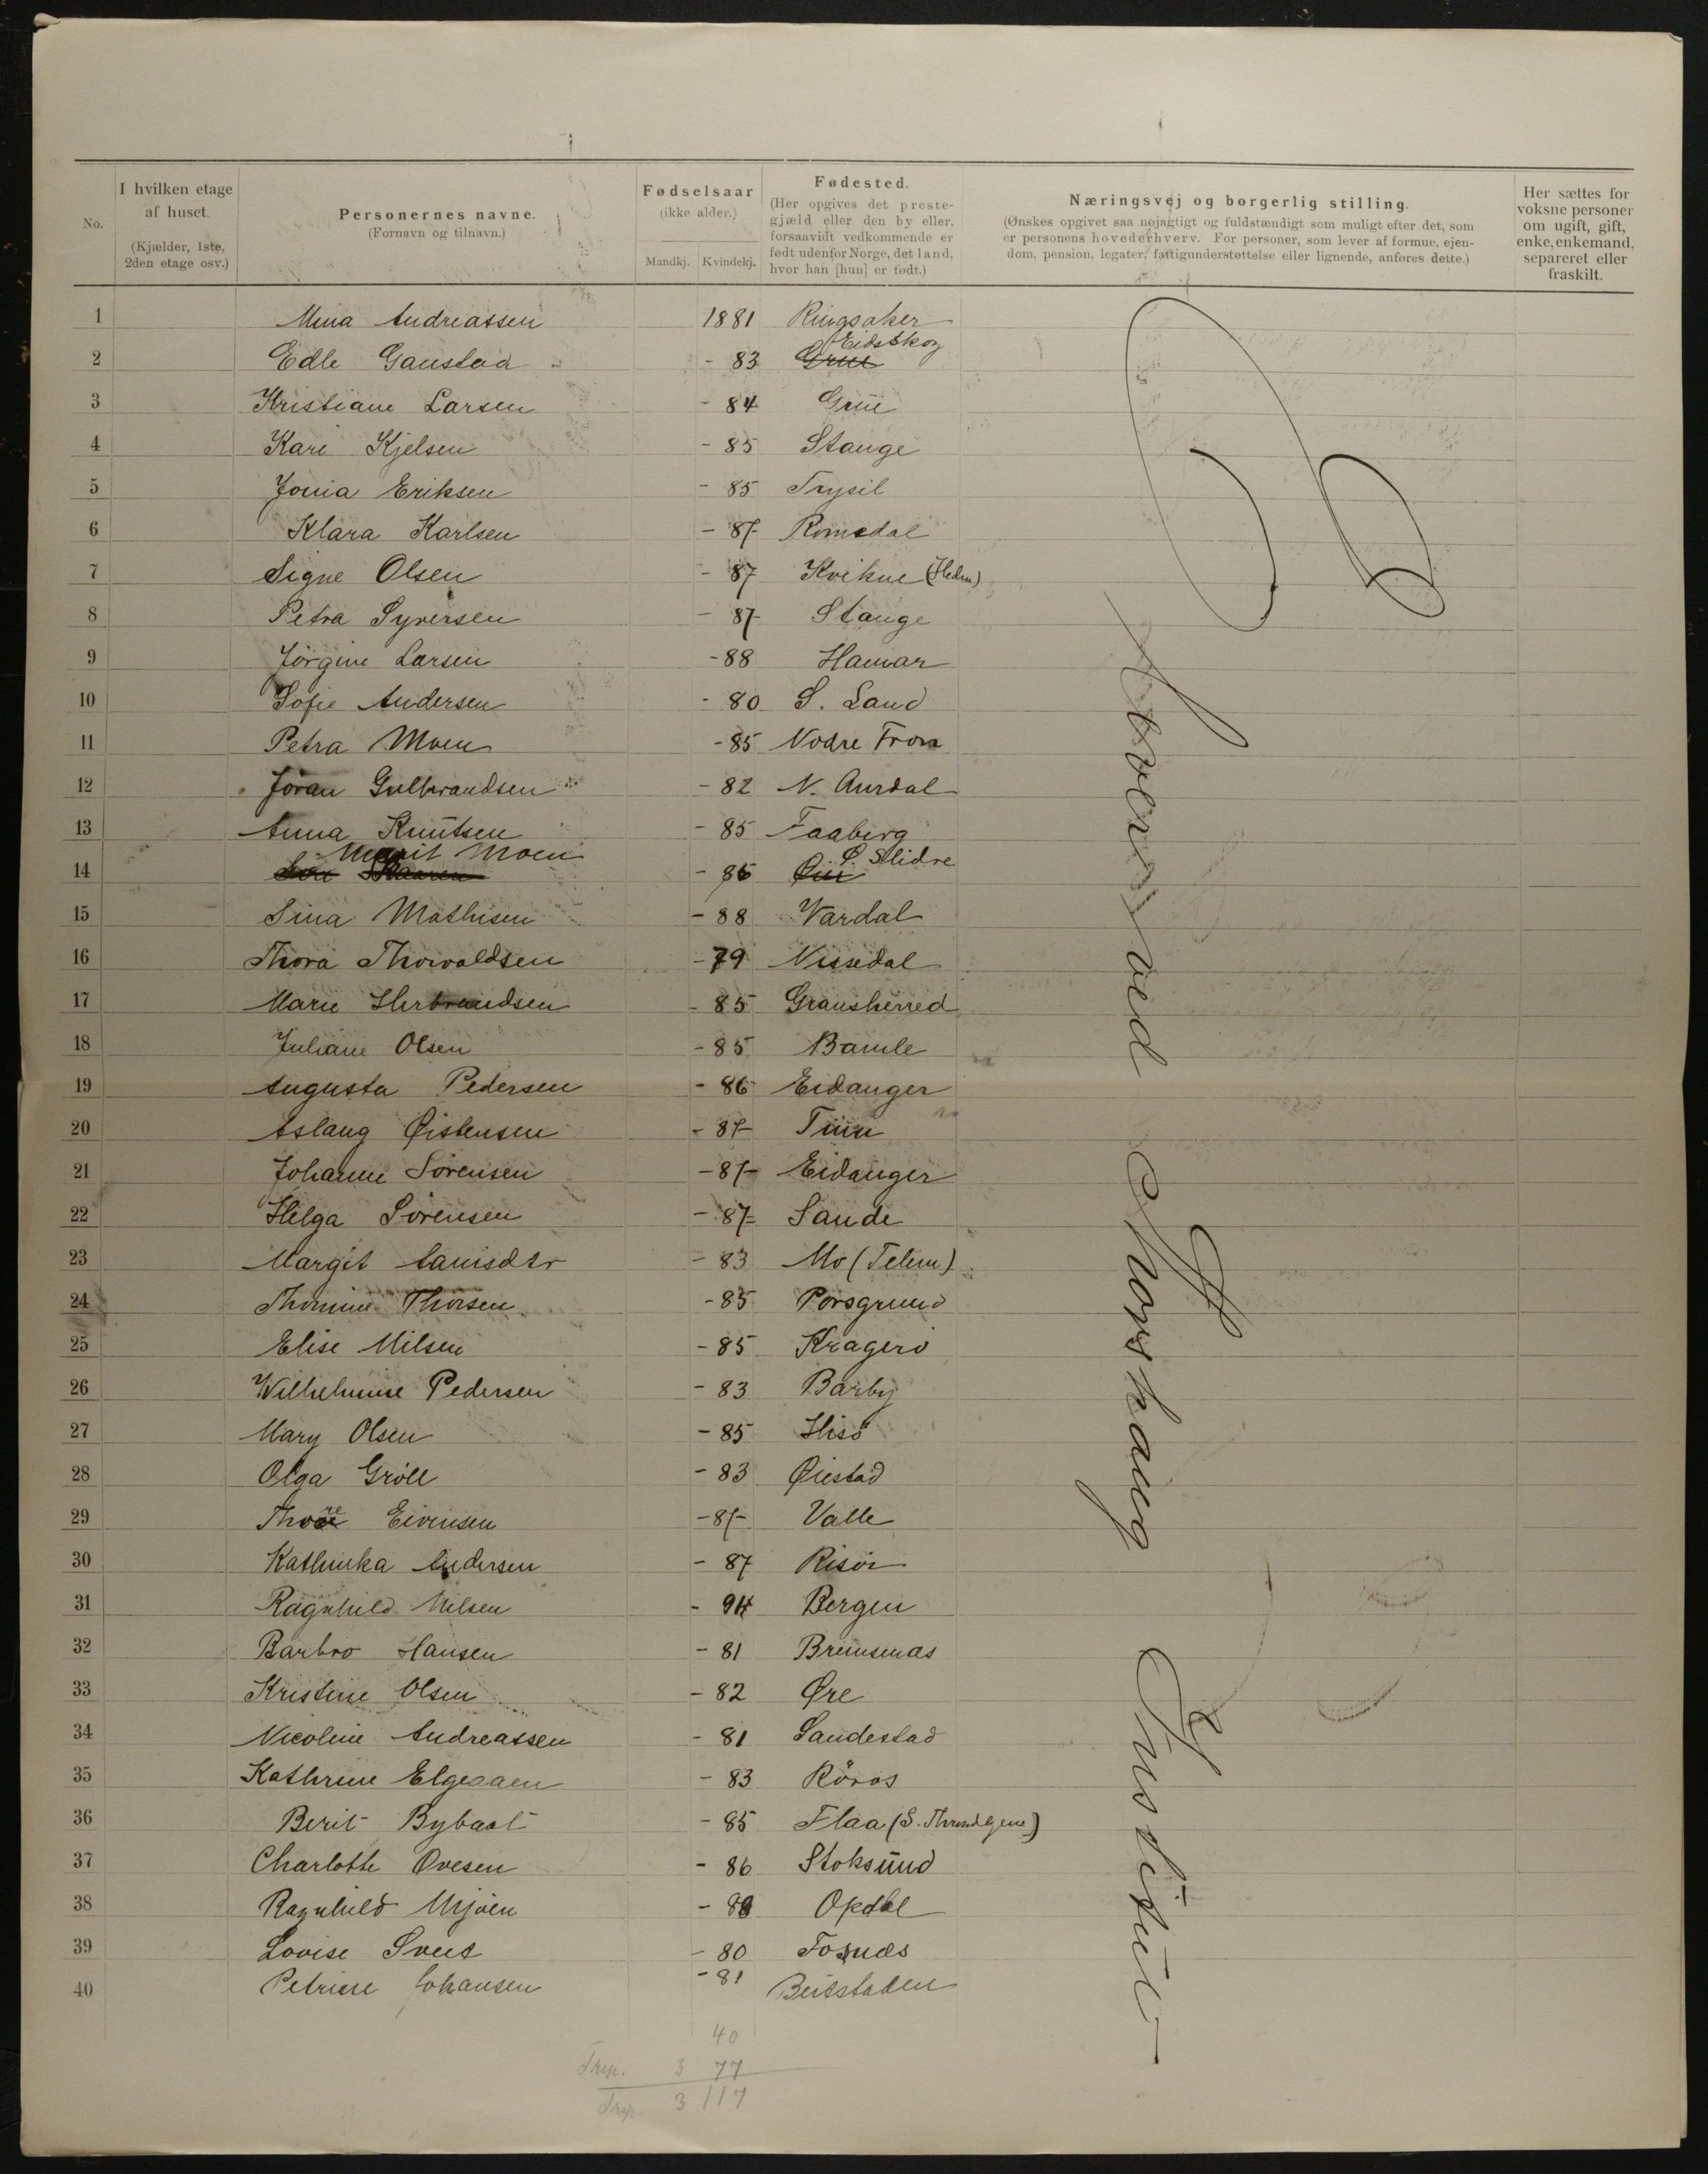 No.
I hvilken etage af huset.
(Kjælder, 1ste, 2den etage osv.)
Personernes navne.
(Fornavn og tilnavn.)
Fødselsaar
(ikke alder.)
Mandkj. Kvindekj.
Fødested.
(Her opgives det preste-
gjæld eller den by eller,
forsaavidt vedkommende er
født udenfor Norge, det land,
hvor han [hun] er født.)
Næringsvej og borgerlig stilling.
(Ønskes opgivet saa nøjagtigt og fuldstændigt som muligt efter det, som
er personens hovederhverv. For personer, som lever af formue, ejen-
dom, pension, legater, fattigunderstøttelse eller lignende, anføres dette.)
Her sættes for
voksne personer
om ugift, gift,
enke, enkemand,
separeret eller
fraskilt.
1 Mina Andreassen 1881 Ringsaker
2 Edle Ganstad - 83 Grue Eidsskog
3 Kristiane Larsen - 84 Grue
4 Kari Kjelsen - 85 Stange
5 Jonia Eriksen - 85 Trysil
6 Klara Karlsen - 87 Romedal
7 Signe Olsen - 87 Kvikne (Hedm)
8 Petra Syversen - 87 Stange
9 Jörgine Larsen - 88 Hamar
10 Sofie Andersen - 80 S. Land
11 Petra Moen - 85 Nodre Fron
12 Jöran Gulbrandsen - 82 N. Aurdal
13 Anna Knutsen - 85 Faaberg
14 Marit Moen - 86 Ø. Slidre
15 Sina Mathisen - 88 Vardal
16 Thora Thorvaldsen - 79 Nissedal
17 Marie Herbrandsen - 85 Gransherred
18 Juliane Olsen - 85 Bamle
19 Augusta Pedersen - 86 Eidanger
20 Aslaug Øistensen - 87 Tinn
21 Johanne Sörensen - 87 Eidanger
22 Helga Sörensen - 87 Sande
23 Margit - 83 Mo (Telem)
24 Thomine Thorsen - 85 Porsgrund
25 Elise Nilsen - 85 Kragerö
26 Wilhelmine Pedersen - 83 Barby
27 Mary Olsen - 85 Hisö
28 Olga Gröll - 83 Øiestad
29 Thore Eivinsen - 87 Valle
30 Kathinka Andersen - 87 Risör
31 Ragnhild Nilsen - 94 Bergen
32 Barbro Hansen - 81 Bremsnæs
33 Kristine Olsen - 82 Øre
34 Nicoline Andreassen - 81 Sandestad
35 Kathrine Elgesaen - 83 Röros
36 Berit Bybaat - 85 Flaa (S. Throndhjem)
37 Charlotte Ovesen - 86 Stoksund
38 Ragnhild Mjöen - 88 Opdal
39 Lovise Svest - 80 Fosnæs
40 Petrine Johansen - 81 Beitstaden
Elever ved Thorshaug Institut
40
Trsp. 3 77
Trsp 3 117